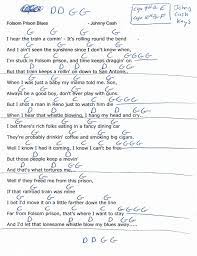 D D G G
Capo 4th = E
Capo 5th = F
Johnny Cash Key's
Folsom Prison Blues - Johnny Cash
G G G G
I hear the train a comin'- It's rolling round the bend
G G G G
And I ain't seen the sunshine since I don't know when,
C C C C G G G G
I'm stuck in Folsom prison, and time keeps draggin' on
D D D D G G
But that train keeps a rollin' on down to San Antone..
G G G
When I was just a baby my mama told me. Son,
G G G
Always be a good boy, don't ever play with guns.
C C G G G G
But I shot a man in Reno just to watch him die
D D G G
When I hear that whistle blowing, I hang my head and cry..
G G G
I bet there's rich folks eating in a fancy dining car
G G G
They're probably drinkin' coffee and smoking big cigars.
C C G G G G
Well I know I had it coming, I know I can't be free
D D
But those people keep a movin'
G G
And that's what tortures me...
G G
Well if they freed me from this prison,
G G
If that railroad train was mine
G G G
I bet I'd move it on a little farther down the line
C C G G G G
Far from Folsom prison, that's where I want to stay
D D G G
And I'd let that lonesome whistle blow my blues away.....
D D G G